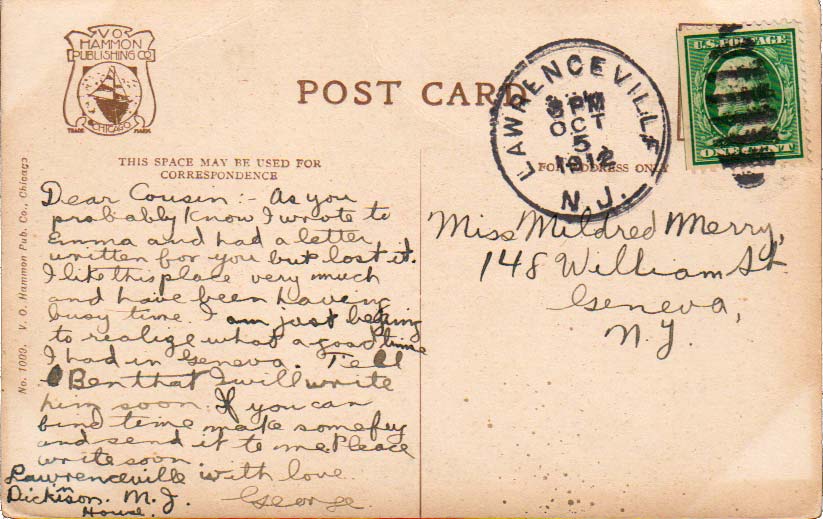 V O
HAMMON
PUBLISHING CO
CHICAGO
TRADE MARK
POST CARD
LAWRENCEVILLE
3 PM
OCT
5
1912
N.J.
U.S. POSTAGE
ONE CENT
THIS SPACE MAY BE USED FOR
CORRESPONDENCE
FOR ADDRESS ONLY
No. 1009. V. O. Hammon Pub. Co., Chicago
Dear Cousin:- As you
probably know I wrote to
Emma and had a letter
written for you but lost it.
I like this place very much
and have been having
busy time. I am just beging
to realize what a good time
I had in Geneva. Tell
Ben that I will write
him soon. If you can
find time make some
and send it to me. Please
write soon.
with love
George
Lawrenceville
Dickinson. N.J.
House.
Miss Mildred Merry,
148 William St
Geneva,
N.Y.